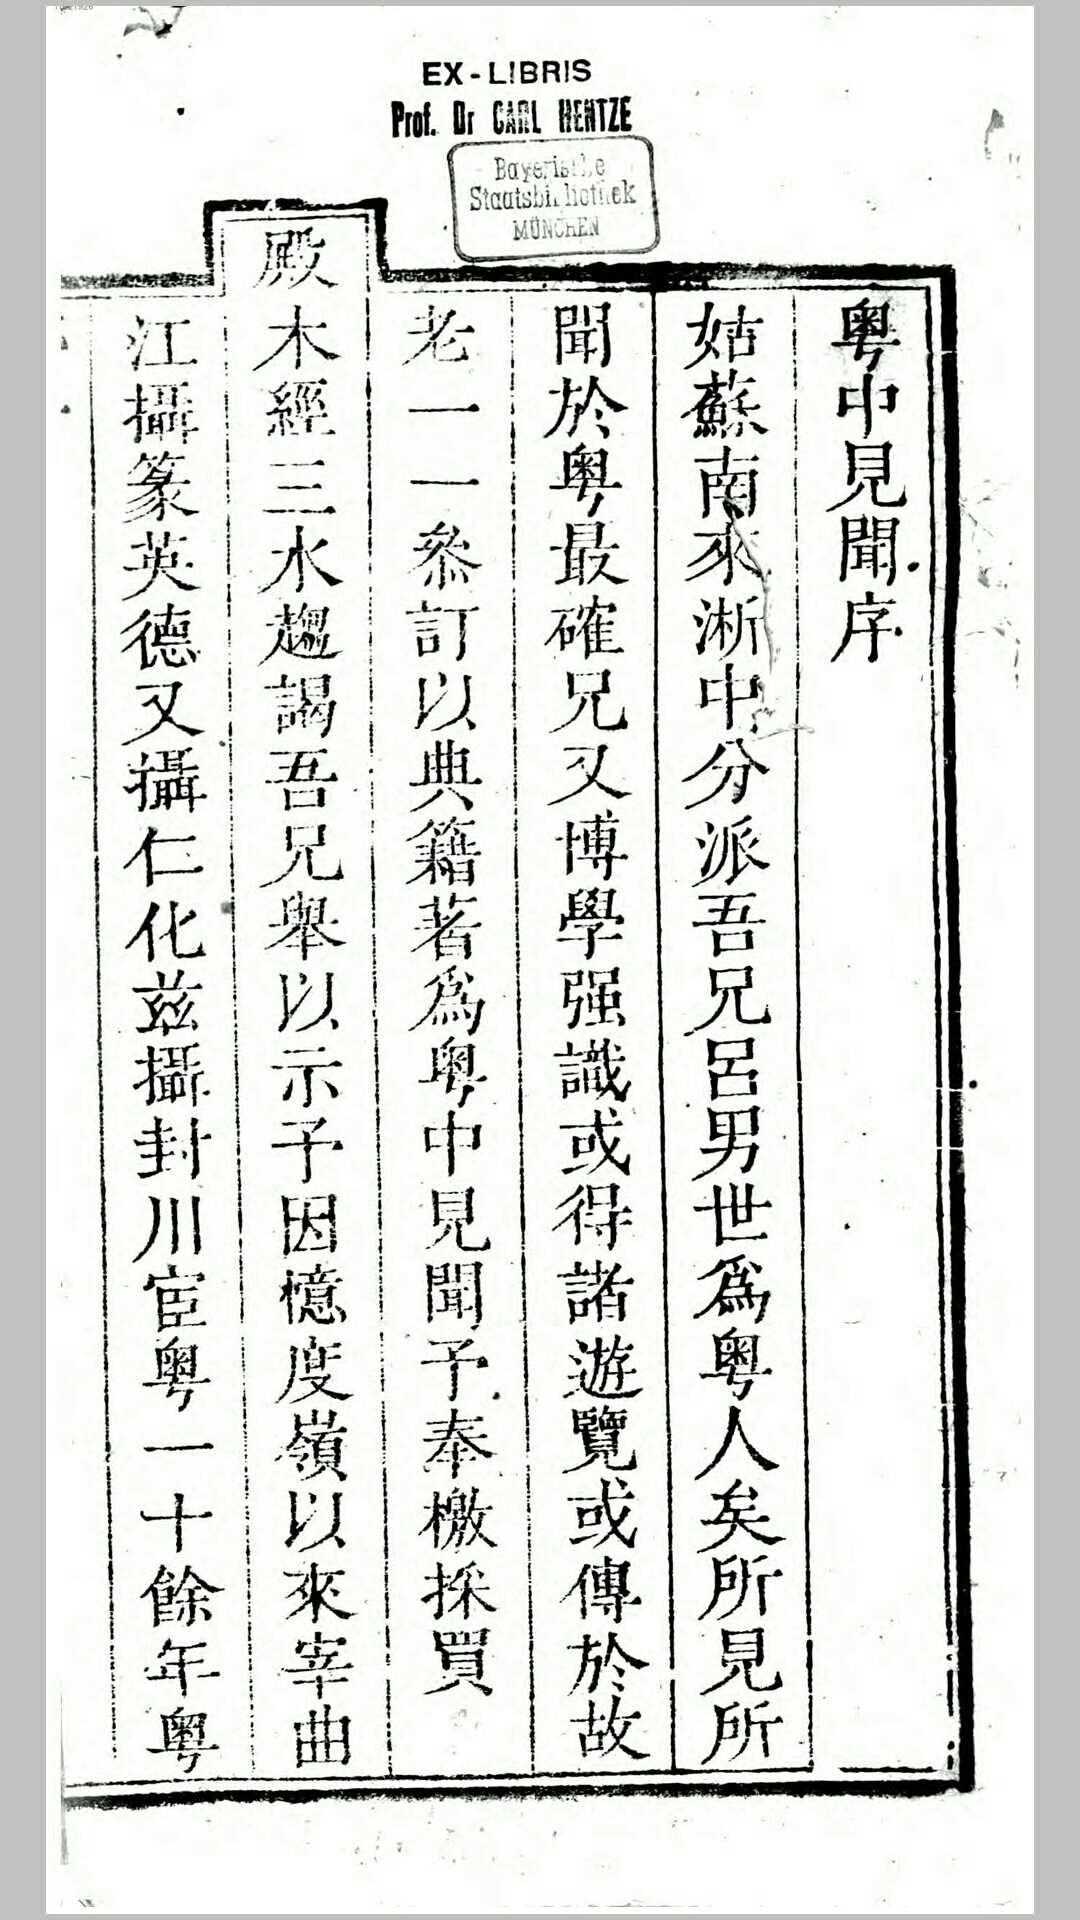 EX-LIBRIS
Prof. Dr CARL HENTZE
Bayerische
Staatsbibliothek
MÜNCHEN
粤中見聞序
姑蘇南來淅中分派吾兄呂男世爲粤人矣所見所
聞於粤最確兄又博學强識或得諸遊覽或傳於故
老一一叅訂以典籍著爲粤中見聞予奉檄採買
殿木經三水趨謁吾兄舉以示予因憶度嶺以來宰曲
江攝篆英德又攝仁化兹攝封川宦粤一十餘年粤